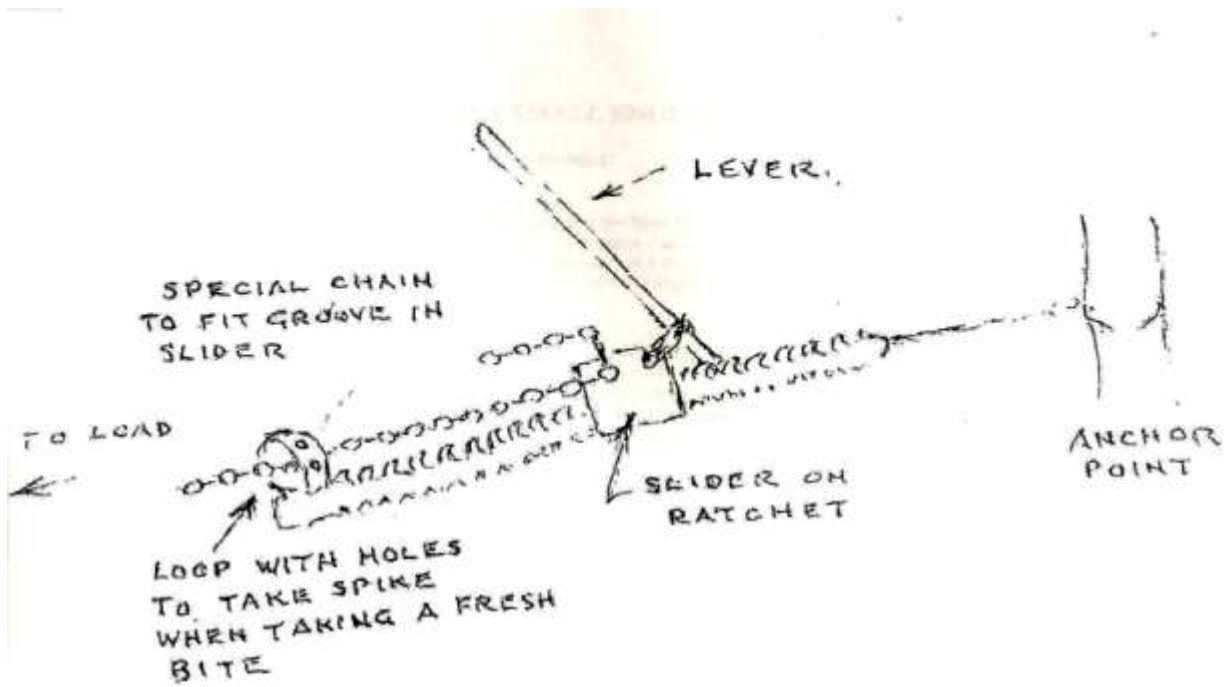 LEVER.
SPECIAL CHAIN
TO FIT GROOVE IN
SLIDER
TO LOAD
ANCHOR
POINT
SLIDER ON
RATCHET
LOOP WITH HOLES
TO TAKE SPIKE
WHEN TAKING A FRESH
BITE